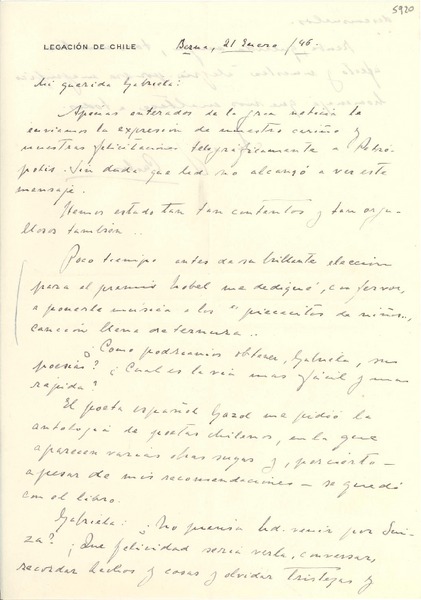 5920
LEGACIÓN DE CHILE
Berna, 21 Enero /46.
Mi querida Gabriela:
Apenas enterados de la gran noticia le
enviamos la expresión de nuestro cariño y
nuestras felicitaciones telegráficamente a Petró-
polis. Sin duda que Ud. no alcanzó a ver este
mensaje.
Hemos estado tan tan contentos y tan orgu-
llosos también..
Poco tiempo antes de su brillante elección
para el premio Nobel me dediqué, con fervor,
a ponerle música a los "piececitos de niño",
canción llena de ternura..
¿Como podríamos obtener, Gabriela, sus
poesías? ¿Cual es la vía mas fácil y mas
rápida?
El poeta español me pidió la
antología de poetas chilenos, en la que
aparecen varias obras suyas y, por cierto —
a pesar de mis recomendaciones — se quedó
con el libro.
Gabriela: ¿No piensa Ud. venir por Sui-
za? ¡Que felicidad sería verla, conversar,
recordar hechos y cosas y olvidar tristezas y